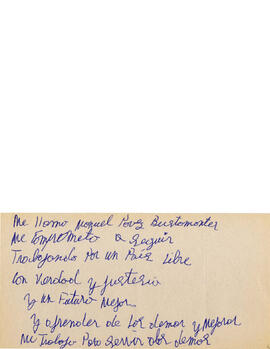 Me llamo Miguel Pérez Bustamonter
Me Comprometo a Seguir
Trabajando por un País libre
Con Verdad y Justicia
y un Futuro Mejor
y aprender de los demas y Mejorar
Mi Trabajo Para Servir a los demas